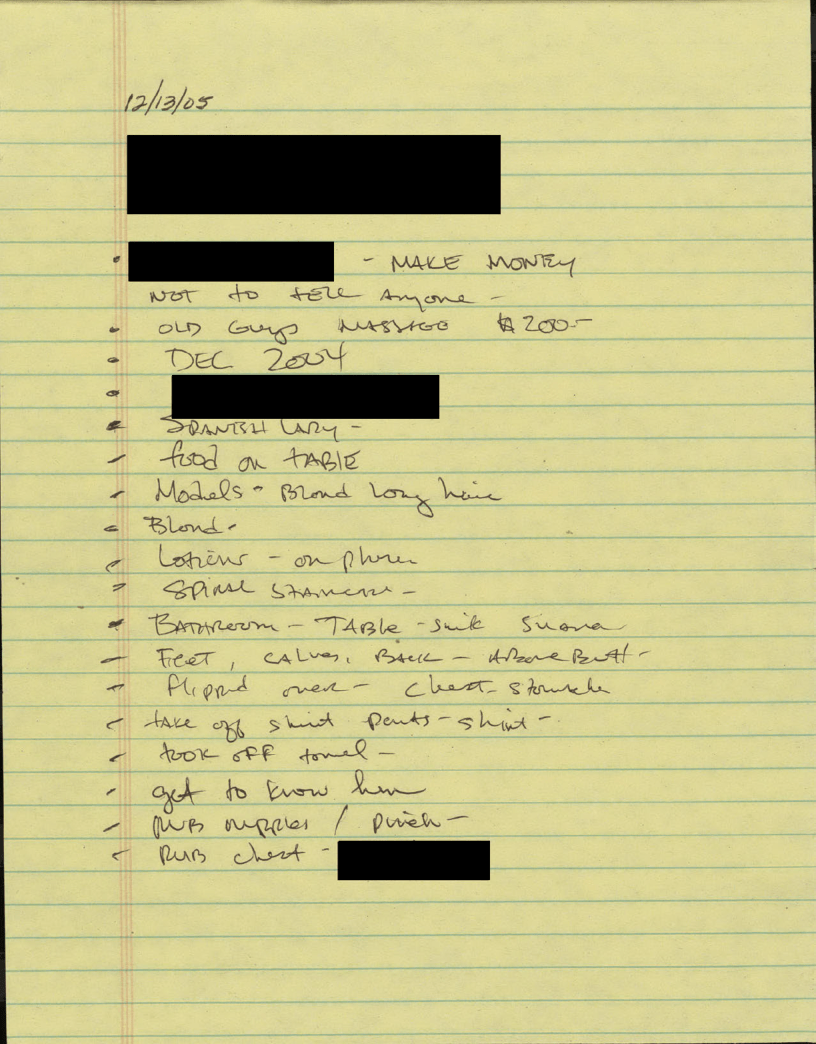 12/13/05
- MAKE MONEY
NOT to tell Anyone -
OLD Guys MASSAGE $200-
DEC 2004
SPANISH LADY -
food on TABLE
Models - Blond Long hair
Blond -
Lotions - on phone
SPIRAL STAIRCASE -
BATHROOM - TABLE - sink
FEET, CALVES, BACK - Above Butt -
flipped over - chest - stomache
take off shirt pants - shirt -
took OFF towel -
get to know him
RUB nipples / pinch -
RUB chest -